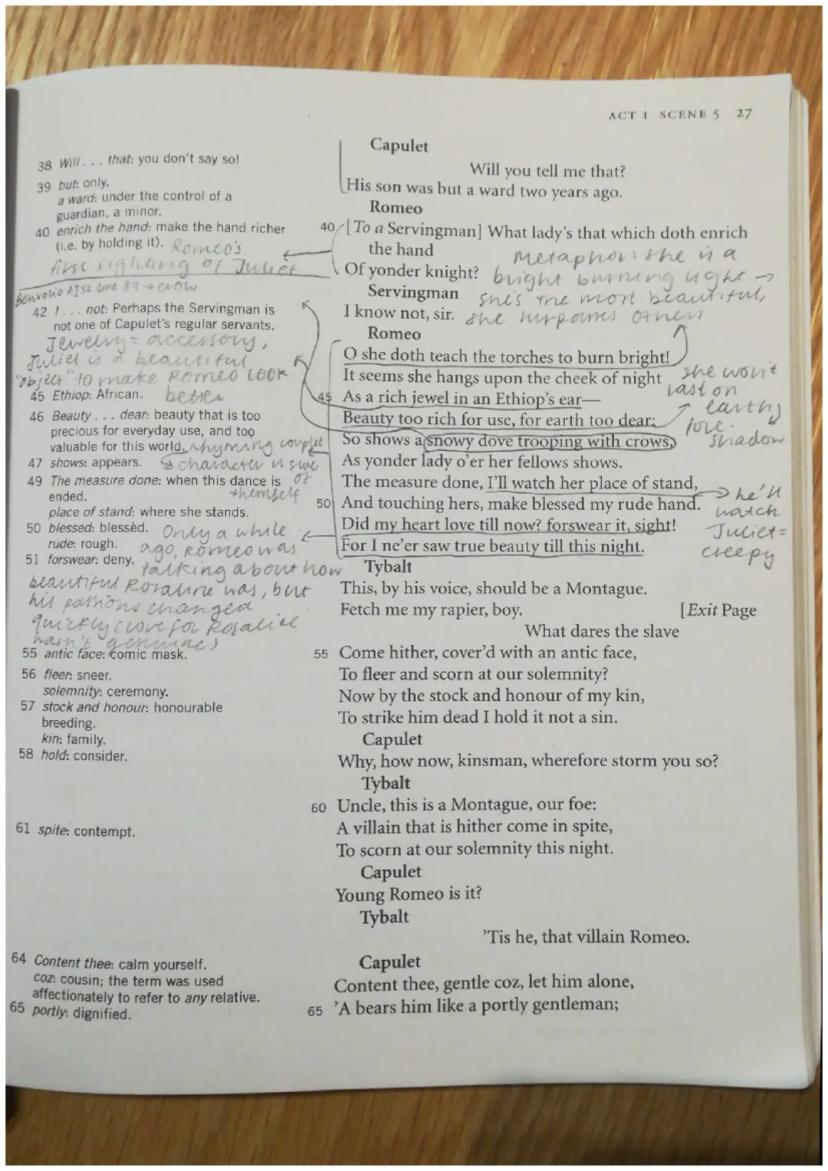 ACT 1 SCENE 5 27
38 Will . . . that: you don't say so!
39 but: only.
a ward: under the control of a
guardian, a minor.
40 enrich the hand: make the hand richer
(i.e. by holding it). Romeo's
first sighting of Juliet
Benvolio A1S2 line 89 → crow
42 I . . . not: Perhaps the Servingman is
not one of Capulet's regular servants.
Jewelry = accessory,
Juliet is a beautiful
"object" to make Romeo look
45 Ethiop: African. better
46 Beauty . . . dear: beauty that is too
precious for everyday use, and too
valuable for this world. rhyming couplet
47 shows: appears. character is sure
49 The measure done: when this dance is of
ended. themself
place of stand: where she stands.
50 blessed: blessèd. Only a while
rude: rough. ago, Romeo was
51 forswear: deny. talking about how
beautiful Rosaline was, but
his passions changed
quickly (love for Rosaline
wasn't genuine)
55 antic face: comic mask.
56 fleer: sneer.
solemnity: ceremony.
57 stock and honour: honourable
breeding.
kin: family.
58 hold: consider.
61 spite: contempt.
64 Content thee: calm yourself.
coz: cousin; the term was used
affectionately to refer to any relative.
65 portly: dignified.
Capulet
Will you tell me that?
His son was but a ward two years ago.
Romeo
40 [To a Servingman] What lady's that which doth enrich
the hand
Of yonder knight?
Metaphor: she is a
bright burning light →
she's the most beautiful,
she surpasses others
Servingman
I know not, sir.
Romeo
O she doth teach the torches to burn bright!
It seems she hangs upon the cheek of night
45 As a rich jewel in an Ethiop's ear—
Beauty too rich for use, for earth too dear:
she won't
last on
earth
fore-
shadow
So shows a snowy dove trooping with crows,
As yonder lady o'er her fellows shows.
The measure done, I'll watch her place of stand,
50 And touching hers, make blessed my rude hand.
Did my heart love till now? forswear it, sight!
For I ne'er saw true beauty till this night.
→ he'll
watch
Juliet =
creepy
Tybalt
This, by his voice, should be a Montague.
Fetch me my rapier, boy. [Exit Page
What dares the slave
55 Come hither, cover'd with an antic face,
To fleer and scorn at our solemnity?
Now by the stock and honour of my kin,
To strike him dead I hold it not a sin.
Capulet
Why, how now, kinsman, wherefore storm you so?
Tybalt
60 Uncle, this is a Montague, our foe:
A villain that is hither come in spite,
To scorn at our solemnity this night.
Capulet
Young Romeo is it?
Tybalt
'Tis he, that villain Romeo.
Capulet
Content thee, gentle coz, let him alone,
65 'A bears him like a portly gentleman;